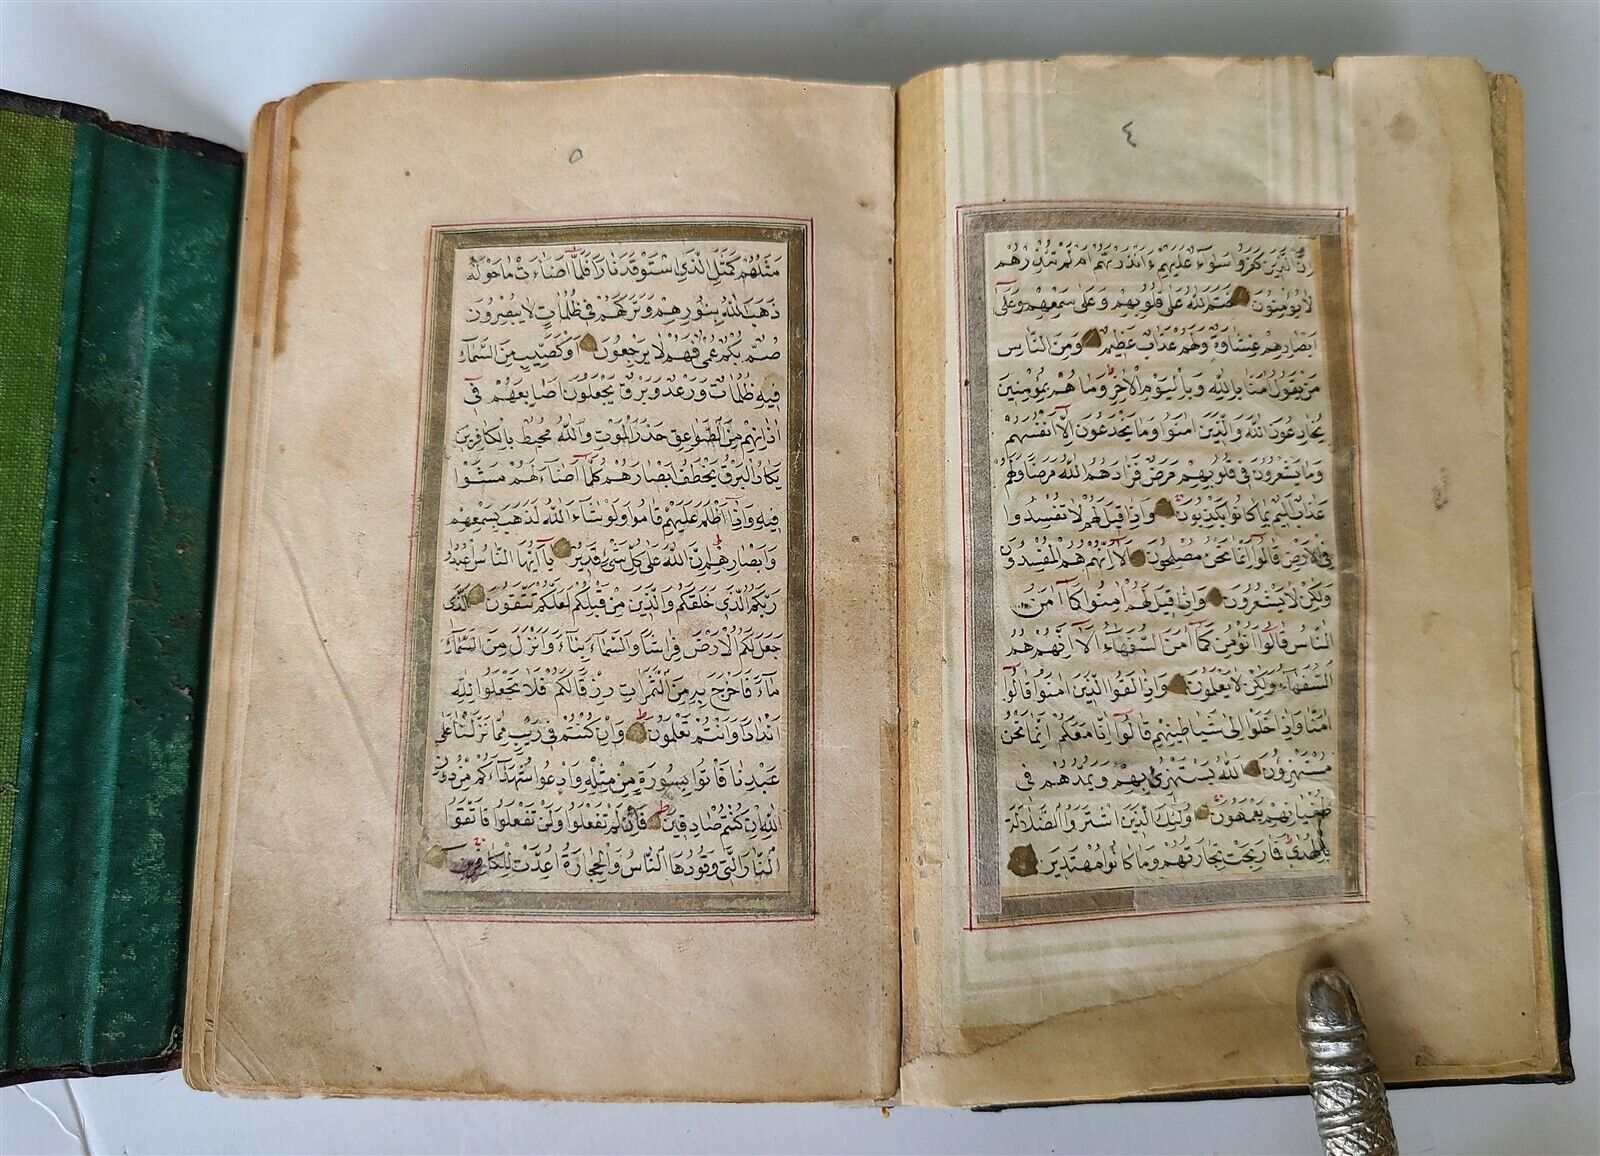 ٤
إِنَّ الَّذِينَ كَفَرُوا سَوَاءٌ عَلَيْهِمْ ءَأَنْذَرْتَهُمْ أَمْ لَمْ تُنْذِرْهُمْ
لَا يُؤْمِنُونَ خَتَمَ اللَّهُ عَلَى قُلُوبِهِمْ وَعَلَى سَمْعِهِمْ وَعَلَى
أَبْصَارِهِمْ غِشَاوَةٌ وَلَهُمْ عَذَابٌ عَظِيمٌ وَمِنَ النَّاسِ
مَنْ يَقُولُ آمَنَّا بِاللَّهِ وَبِالْيَوْمِ الْآخِرِ وَمَا هُمْ بِمُؤْمِنِينَ
يُخَادِعُونَ اللَّهَ وَالَّذِينَ آمَنُوا وَمَا يَخْدَعُونَ إِلَّا أَنْفُسَهُمْ
وَمَا يَشْعُرُونَ فِي قُلُوبِهِمْ مَرَضٌ فَزَادَهُمُ اللَّهُ مَرَضًا وَلَهُمْ
عَذَابٌ أَلِيمٌ بِمَا كَانُوا يَكْذِبُونَ وَإِذَا قِيلَ لَهُمْ لَا تُفْسِدُوا
فِي الْأَرْضِ قَالُوا إِنَّمَا نَحْنُ مُصْلِحُونَ أَلَا إِنَّهُمْ هُمُ الْمُفْسِدُونَ
وَلَكِنْ لَا يَشْعُرُونَ وَإِذَا قِيلَ لَهُمْ آمِنُوا كَمَا آمَنَ
النَّاسُ قَالُوا أَنُؤْمِنُ كَمَا آمَنَ السُّفَهَاءُ أَلَا إِنَّهُمْ هُمُ
السُّفَهَاءُ وَلَكِنْ لَا يَعْلَمُونَ وَإِذَا لَقُوا الَّذِينَ آمَنُوا قَالُوا
آمَنَّا وَإِذَا خَلَوْا إِلَى شَيَاطِينِهِمْ قَالُوا إِنَّا مَعَكُمْ إِنَّمَا نَحْنُ
مُسْتَهْزِؤُنَ اللَّهُ يَسْتَهْزِئُ بِهِمْ وَيَمُدُّهُمْ فِي
طُغْيَانِهِمْ يَعْمَهُونَ أُولَئِكَ الَّذِينَ اشْتَرَوُا الضَّلَالَةَ
بِالْهُدَى فَمَا رَبِحَتْ تِجَارَتُهُمْ وَمَا كَانُوا مُهْتَدِينَ
٥
مَثَلُهُمْ كَمَثَلِ الَّذِي اسْتَوْقَدَ نَارًا فَلَمَّا أَضَاءَتْ مَا حَوْلَهُ
ذَهَبَ اللَّهُ بِنُورِهِمْ وَتَرَكَهُمْ فِي ظُلُمَاتٍ لَا يُبْصِرُونَ
صُمٌّ بُكْمٌ عُمْيٌ فَهُمْ لَا يَرْجِعُونَ أَوْ كَصَيِّبٍ مِنَ السَّمَاءِ
فِيهِ ظُلُمَاتٌ وَرَعْدٌ وَبَرْقٌ يَجْعَلُونَ أَصَابِعَهُمْ فِي
آذَانِهِمْ مِنَ الصَّوَاعِقِ حَذَرَ الْمَوْتِ وَاللَّهُ مُحِيطٌ بِالْكَافِرِينَ
يَكَادُ الْبَرْقُ يَخْطَفُ أَبْصَارَهُمْ كُلَّمَا أَضَاءَ لَهُمْ مَشَوْا
فِيهِ وَإِذَا أَظْلَمَ عَلَيْهِمْ قَامُوا وَلَوْ شَاءَ اللَّهُ لَذَهَبَ بِسَمْعِهِمْ
وَأَبْصَارِهِمْ إِنَّ اللَّهَ عَلَى كُلِّ شَيْءٍ قَدِيرٌ يَا أَيُّهَا النَّاسُ اعْبُدُوا
رَبَّكُمُ الَّذِي خَلَقَكُمْ وَالَّذِينَ مِنْ قَبْلِكُمْ لَعَلَّكُمْ تَتَّقُونَ الَّذِي
جَعَلَ لَكُمُ الْأَرْضَ فِرَاشًا وَالسَّمَاءَ بِنَاءً وَأَنْزَلَ مِنَ السَّمَاءِ
مَاءً فَأَخْرَجَ بِهِ مِنَ الثَّمَرَاتِ رِزْقًا لَكُمْ فَلَا تَجْعَلُوا لِلَّهِ
أَنْدَادًا وَأَنْتُمْ تَعْلَمُونَ وَإِنْ كُنْتُمْ فِي رَيْبٍ مِمَّا نَزَّلْنَا عَلَى
عَبْدِنَا فَأْتُوا بِسُورَةٍ مِنْ مِثْلِهِ وَادْعُوا شُهَدَاءَكُمْ مِنْ دُونِ
اللَّهِ إِنْ كُنْتُمْ صَادِقِينَ فَإِنْ لَمْ تَفْعَلُوا وَلَنْ تَفْعَلُوا فَاتَّقُوا
النَّارَ الَّتِي وَقُودُهَا النَّاسُ وَالْحِجَارَةُ أُعِدَّتْ لِلْكَافِرِينَ